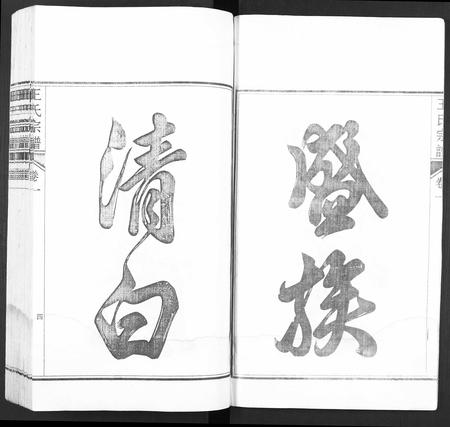 王氏宗譜
卷一
盛族
清白
王氏宗譜
卷一
四